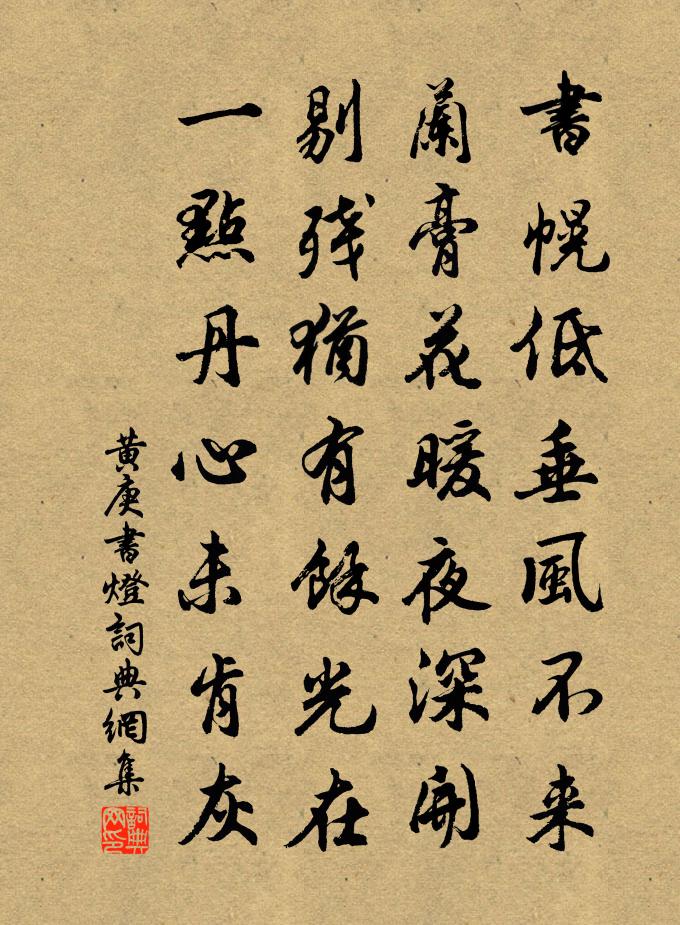 書幌低垂風不来
蘭膏花暖夜深開
剔残猶有餘光在
一點丹心未肯灰
黄庚書燈詞典網集
詞典網印